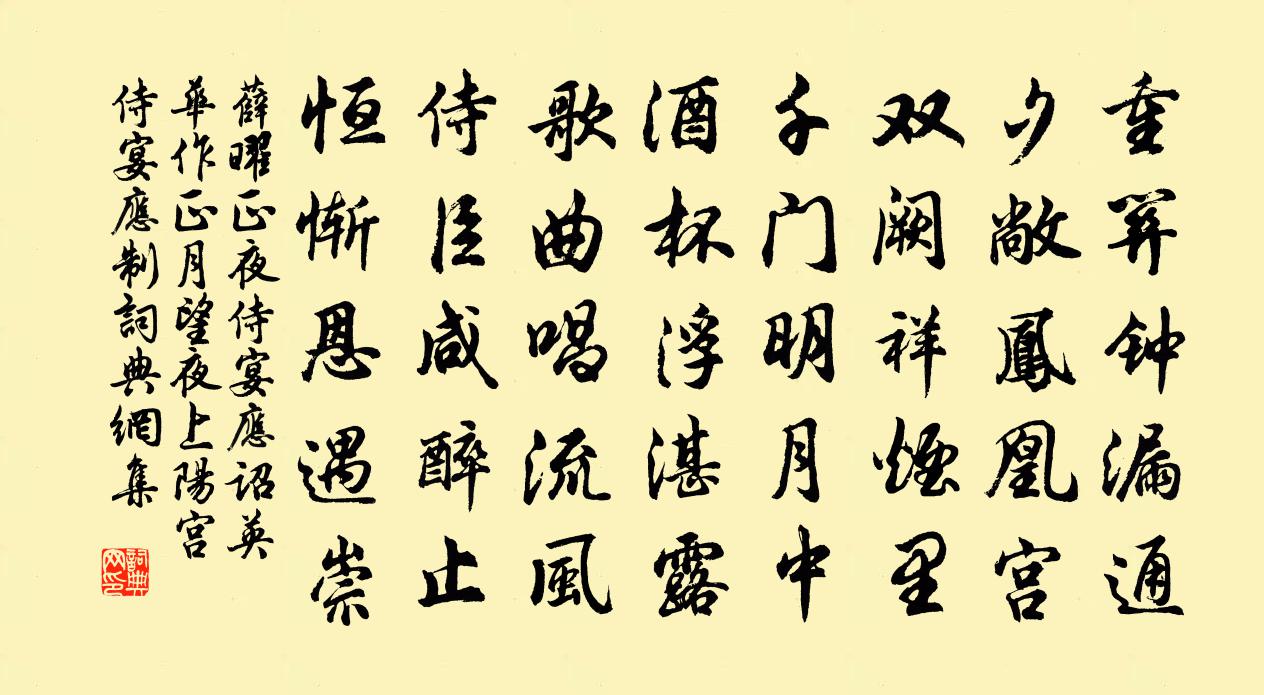 重关钟漏通
夕敞鳳凰宫
双阙祥煙里
千门明月中
酒杯浮湛露
歌曲唱流風
侍臣咸醉止
恒惭恩遇崇
薛曜正夜侍宴應詔英
華作正月望夜上陽宫
侍宴應制詞典網集
詞典网印